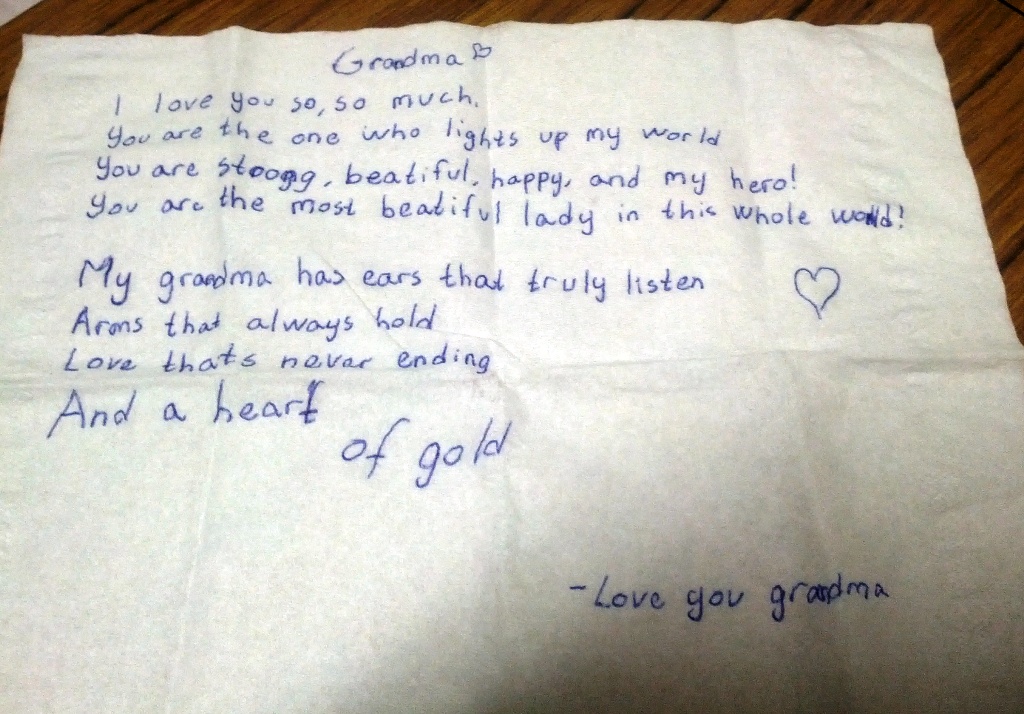 Grandma
I love you so, so much.
You are the one who lights up my world
You are stoogg, beatiful, happy, and my hero!
You are the most beatiful lady in this whole world!
My grandma has ears that truly listen
Arms that always hold
Love thats never ending
And a heart
of gold
-Love you grandma